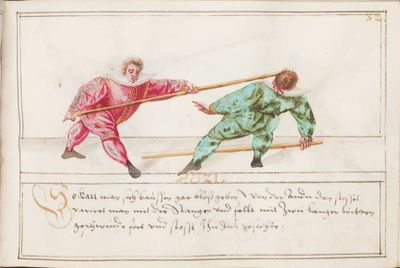 32
So kan man sich haussen gar bloß geben wan der Ander dan stosst,
pariert man mit der Stangen vnd fellt mit zwei langen tritten
geschwindt fort vnd stosst Ihn ins gesichte.